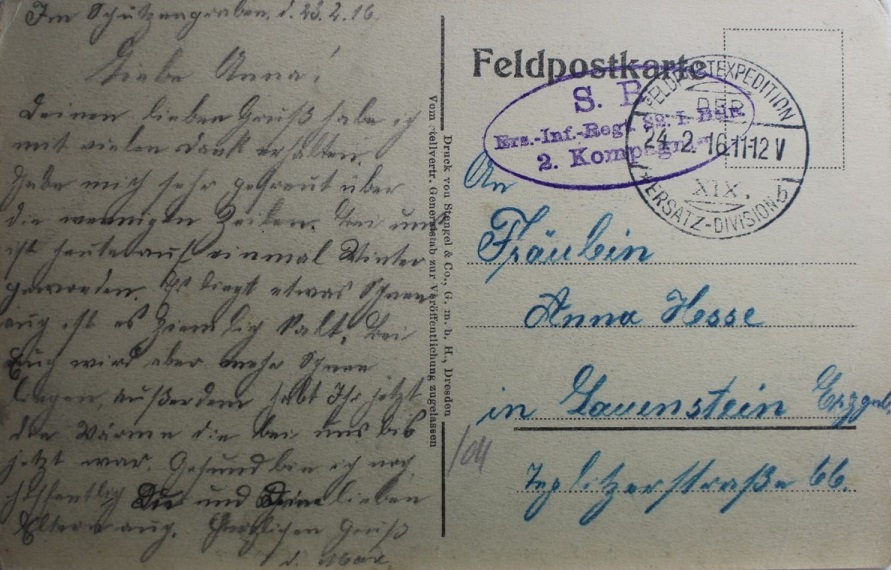 Im Schützengraben, d. 23.2.16.
Liebe Anna!
Deinen lieben Gruß habe ich
mit vielen Dank erhalten.
Habe mich sehr gefreut über
die wennigen Zeilen. Bei uns
ist heute auf einmal Winter
geworden. Es liegt etwas Schnee
auch ist es ziemlich kalt, bei
Euch wird aber mehr Schnee
liegen, außerdem habt Ihr jetzt
die Wärme die bei uns bis
jetzt war. Gesund bin ich noch,
hoffentlich Du und Deine lieben
Eltern auch. Herzlichen Gruß
d. Max
Vom stellvertr. Generalstab zur Veröffentlichung zugelassen
Druck von Stengel & Co., G. m. b. H., Dresden
Feldpostkarte
S. B.
Ers.-Inf.-Regt.
2. Kompagnie
FELDPOSTEXPEDITION
DER
24.2.16.11-12 V
XIX.
* ERSATZ-DIVISION b
An
Fräulein
Anna Hesse
in Lauenstein Erzgeb.
Teplitzerstraße 66.